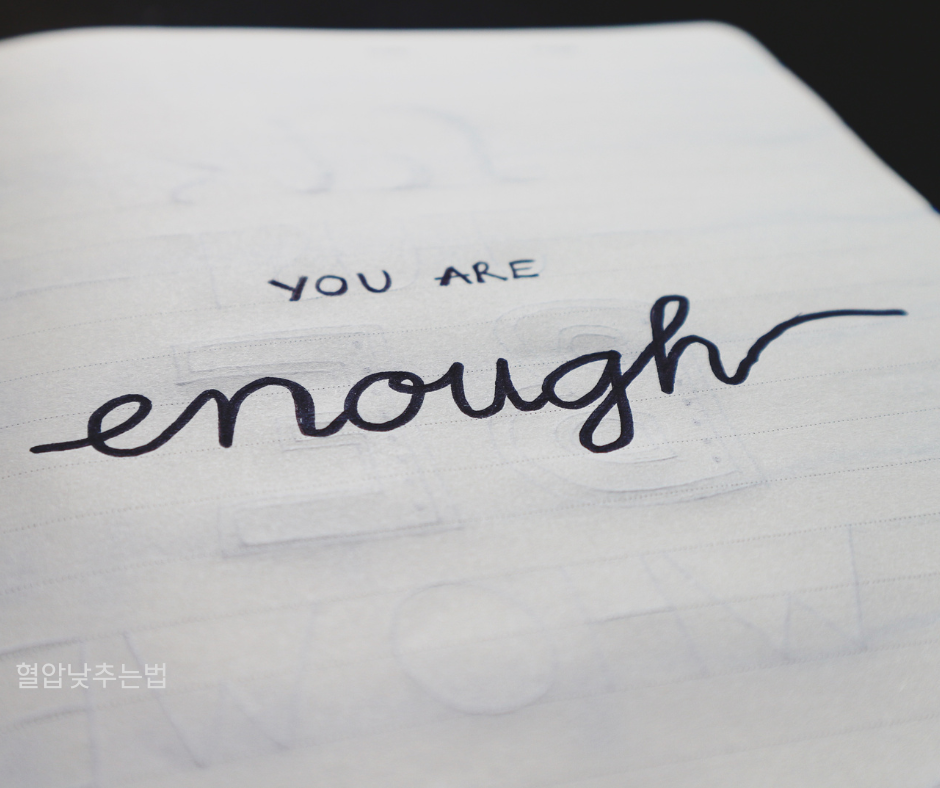 YOU ARE
enough
혈압낮추는법